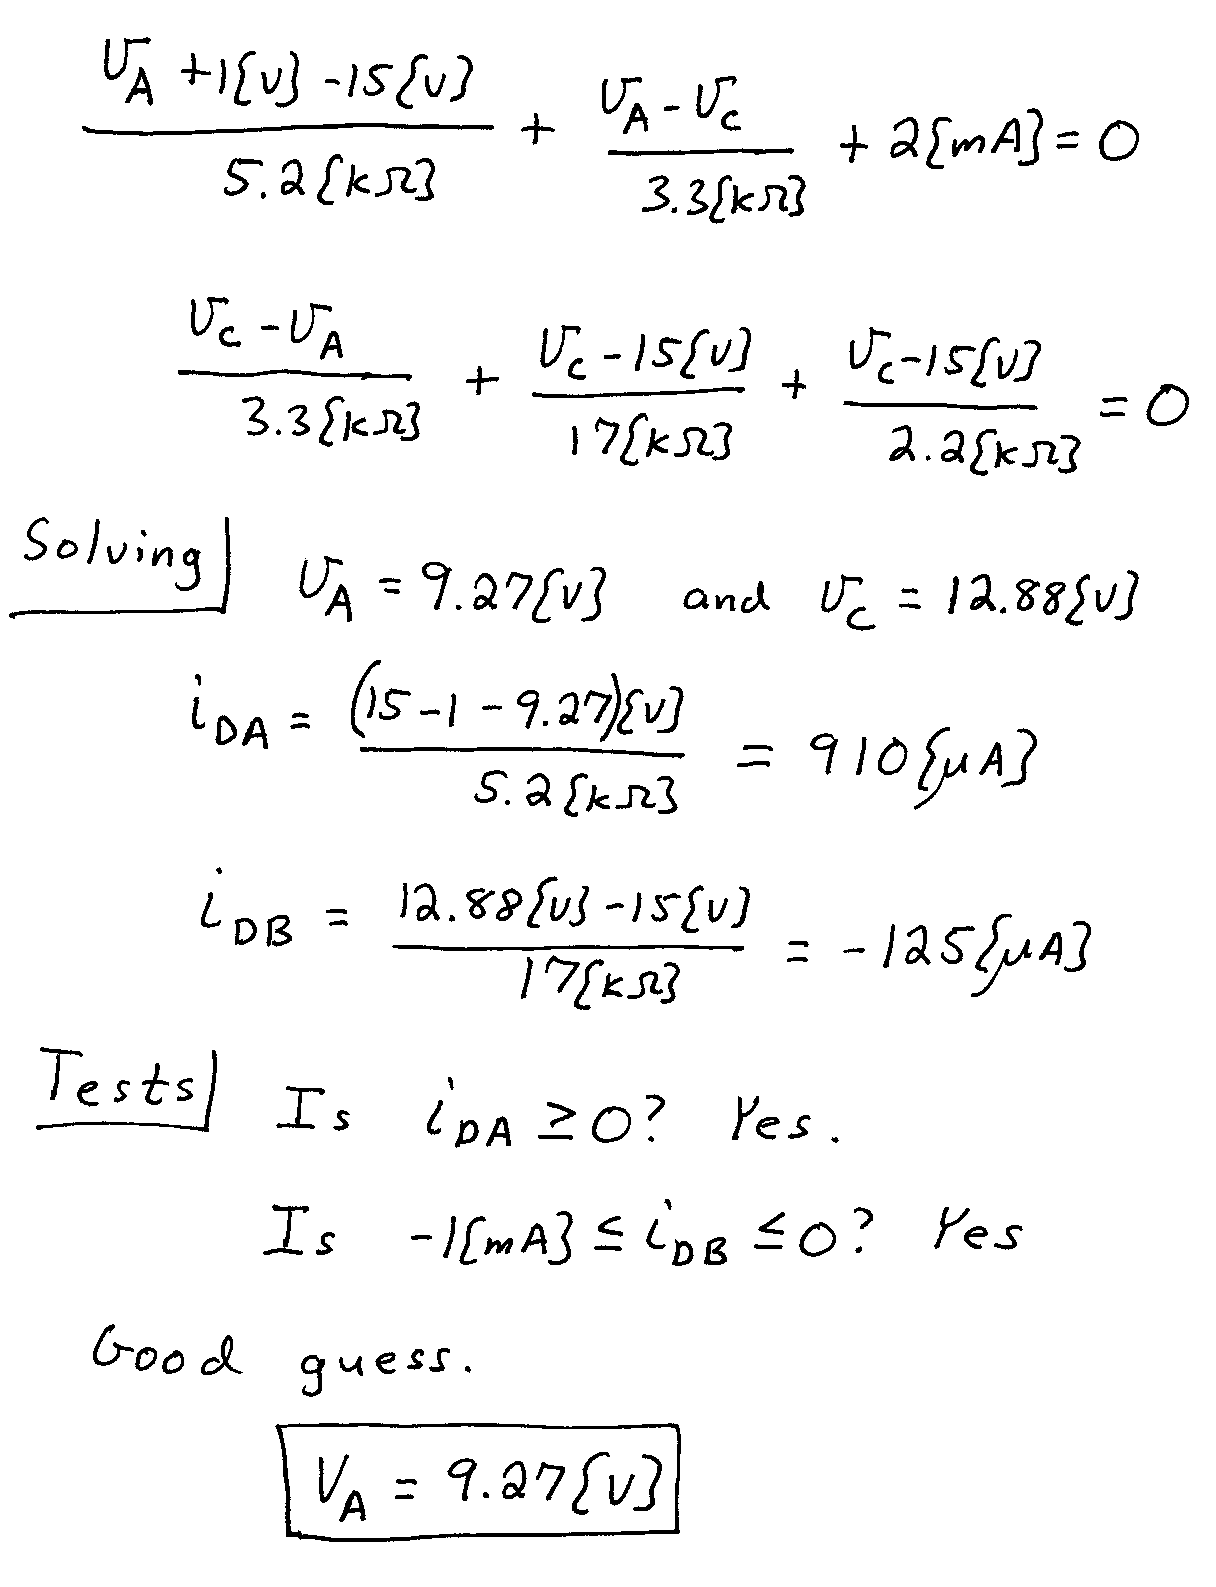 (v_A + 1{V} - 15{V}) / 5.2{kΩ} + (v_A - v_C) / 3.3{kΩ} + 2{mA} = 0
(v_C - v_A) / 3.3{kΩ} + (v_C - 15{V}) / 17{kΩ} + (v_C - 15{V}) / 2.2{kΩ} = 0
Solving v_A = 9.27{V} and v_C = 12.88{V}
i_DA = (15 - 1 - 9.27){V} / 5.2{kΩ} = 910{μA}
i_DB = 12.88{V} - 15{V} / 17{kΩ} = -125{μA}
Tests Is i_DA ≥ 0? Yes.
Is -1{mA} ≤ i_DB ≤ 0? Yes
Good guess.
V_A = 9.27{V}